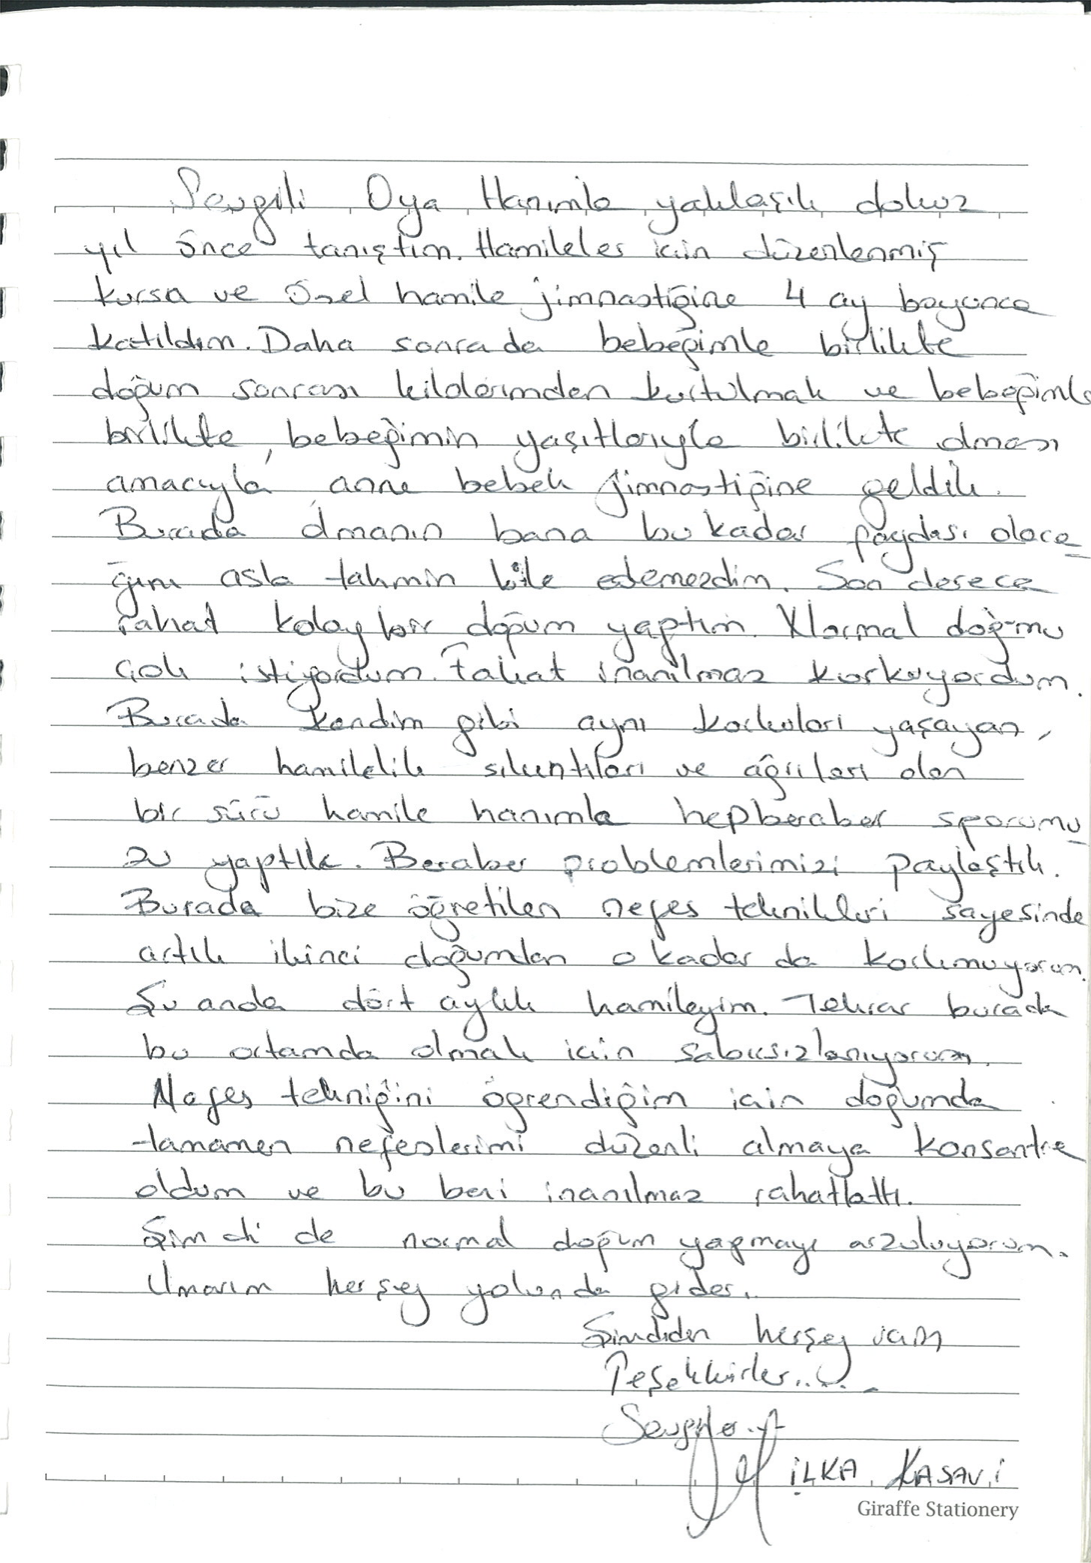 Sevgili Oya Hanımla yaklaşık dokuz
yıl önce tanıştım. Hamileler için düzenlenmiş
kursa ve özel hamile jimnastiğine 4 ay boyunca
katıldım. Daha sonra da bebeğimle birlikte
doğum sonrası kilolarımdan kurtulmak ve bebeğimle
birlikte, bebeğimin yaşıtlarıyla birlikte olması
amacıyla anne bebek jimnastiğine geldik.
Burada olmanın bana bu kadar faydası olaca-
ğını asla tahmin bile edemezdim. Son derece
rahat kolay bir doğum yaptım. Normal doğumu
çok istiyordum. Fakat inanılmaz korkuyordum.
Burada kendim gibi aynı korkuları yaşayan,
benzer hamilelik sıkıntıları ve ağrıları olan
bir sürü hamile hanımla hepberaber sporumu-
zu yaptık. Beraber problemlerimizi paylaştık.
Burada bize öğretilen nefes teknikleri sayesinde
artık ikinci doğumdan o kadar da korkmuyorum.
Şu anda dört aylık hamileyim. Tekrar burada
bu ortamda olmak için sabırsızlanıyorum.
Nefes tekniğini öğrendiğim için doğumda
tamamen nefeslerimi düzenli almaya konsantre
oldum ve bu beni inanılmaz rahatlattı.
Şimdi de normal doğum yapmayı arzuluyorum.
Umarım herşey yolunda gider.
Şimdiden herşey için
Teşekkürler...
Sevgiler
İLKA KASAVİ
Giraffe Stationery